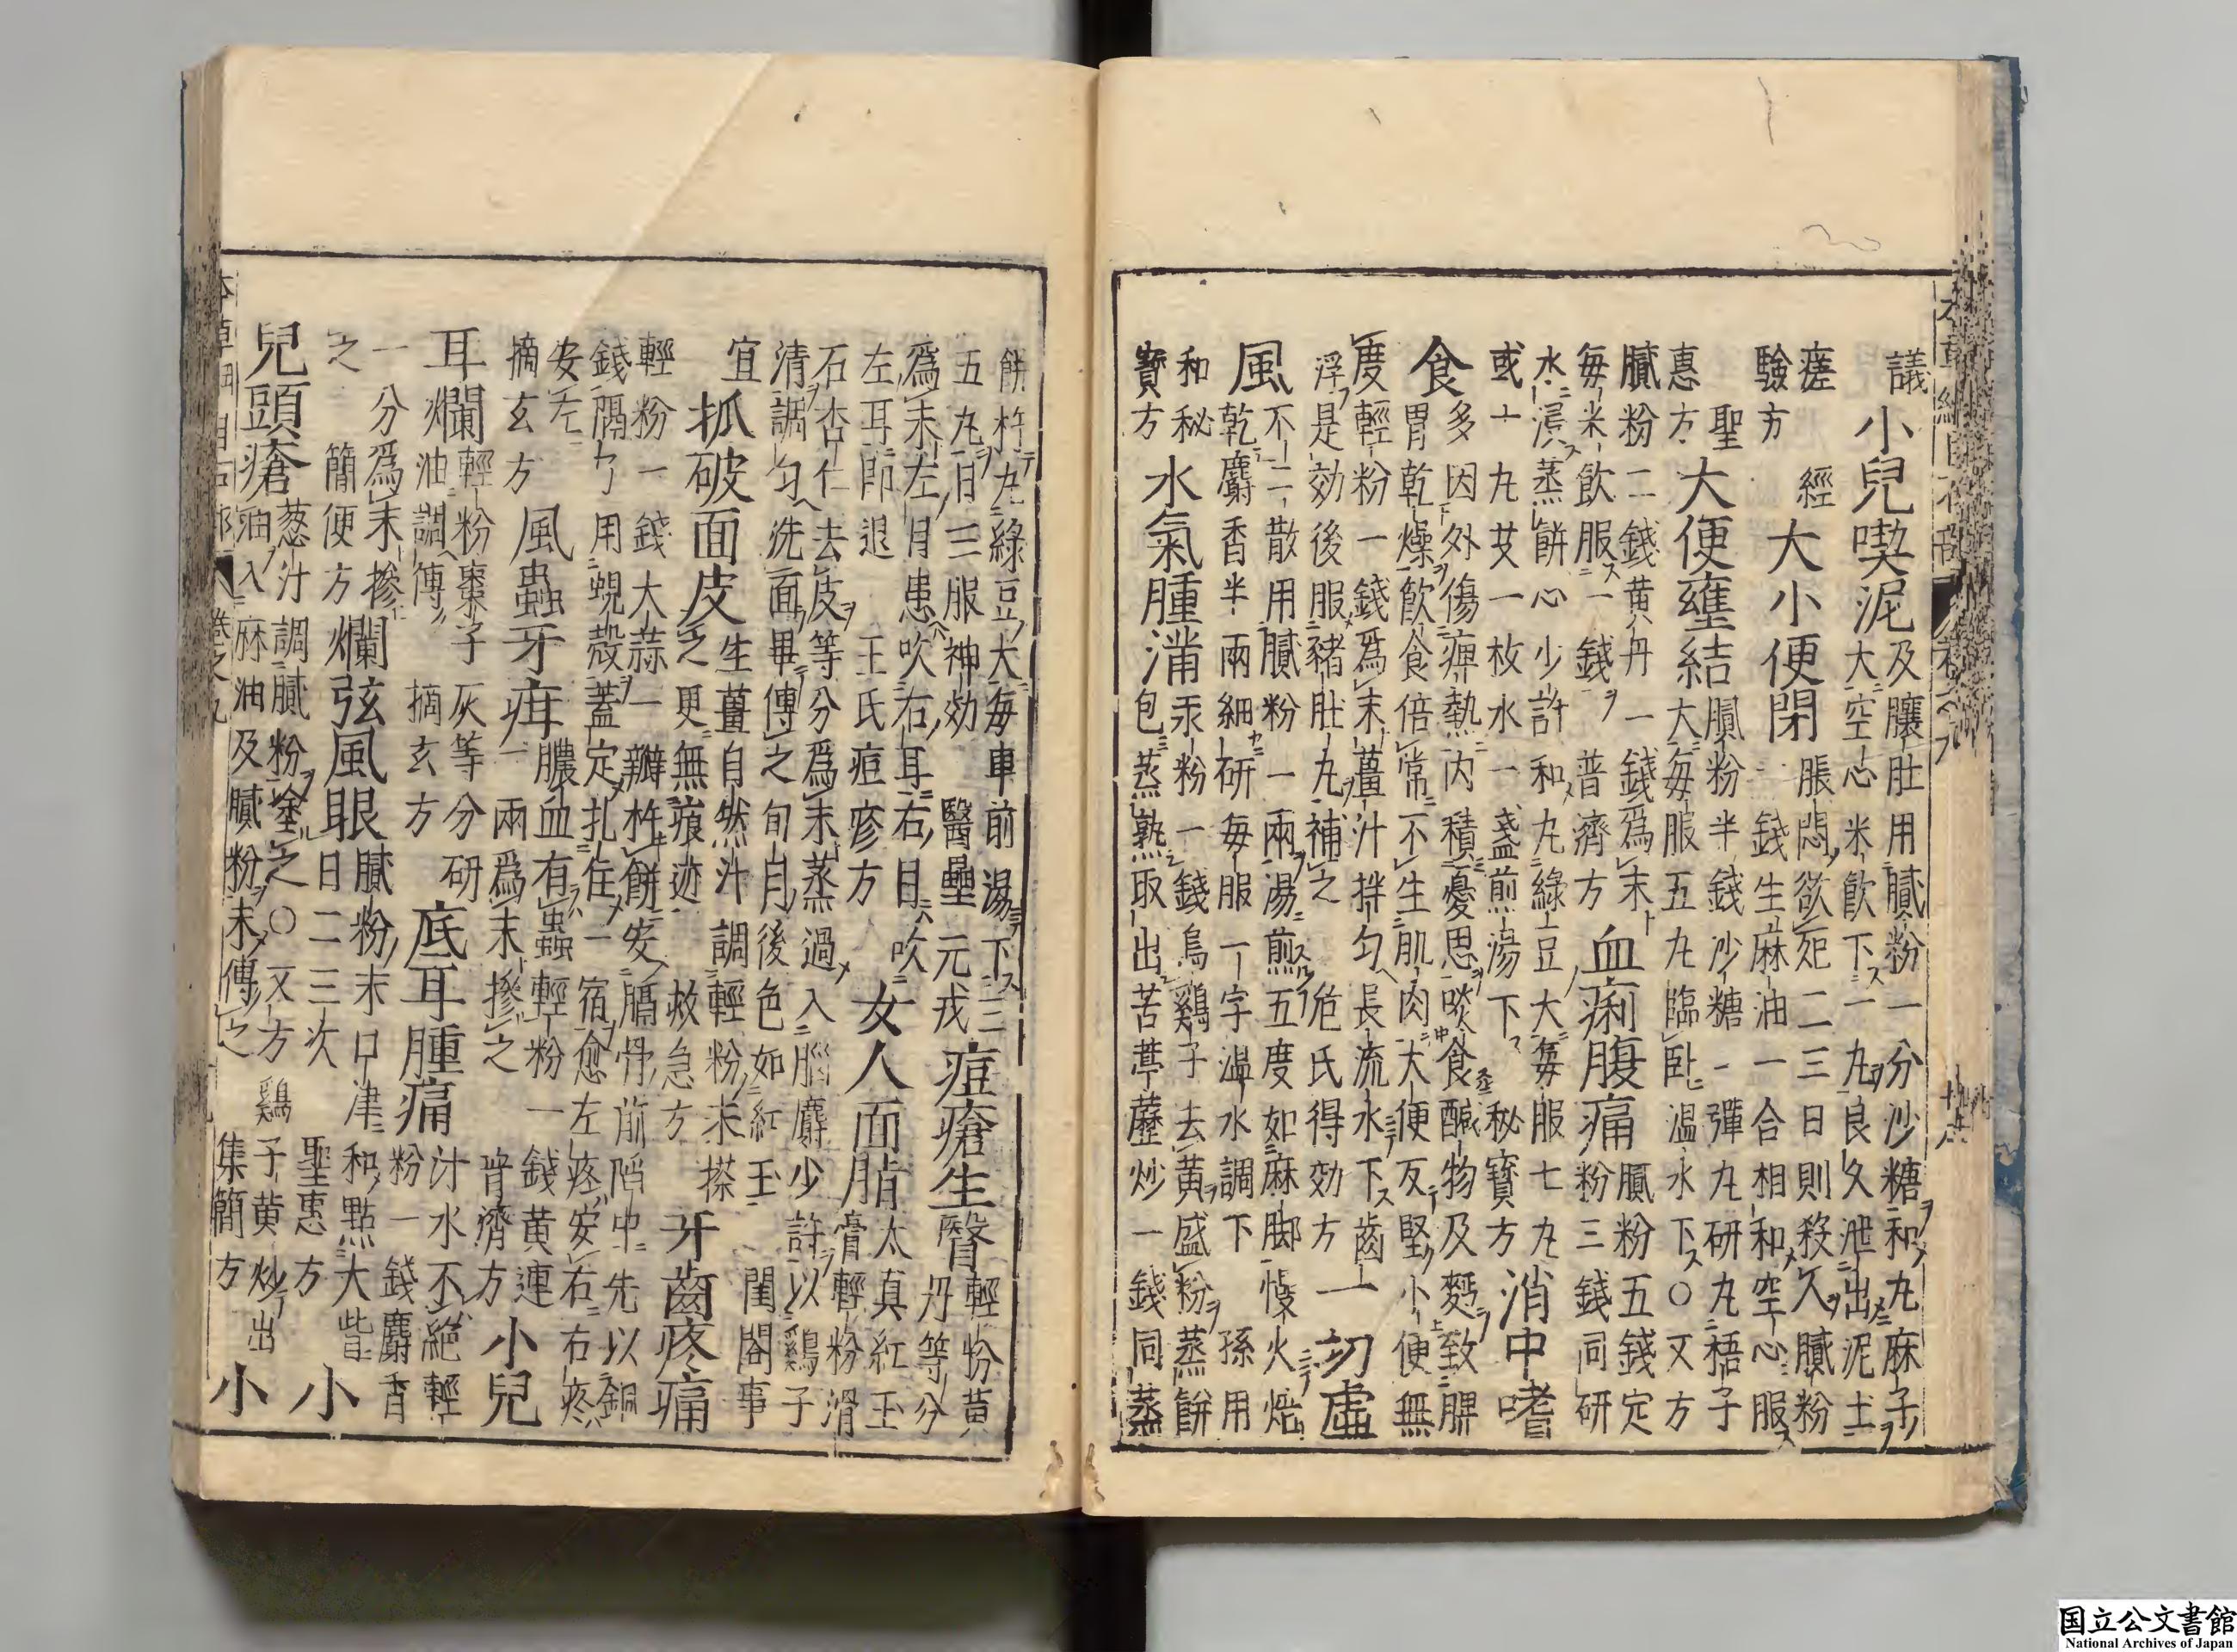 議
小兒喫泥
及臟肚用膩粉一分沙糖和丸麻子
大空心米飲下一丸良久泄出泥土
瘥 經
驗方
大小便閉
脹悶欲死二三日則殺人膩粉
一錢生麻油一合相和空心服
聖
惠方
大便壅結
膩粉半錢沙糖一彈丸研丸梧子
大每服五丸臨臥溫水下○又方
膩粉二錢黃丹一錢爲末
每米飲服一錢 普濟方
血痢腹痛
膩粉五錢定
粉三錢同研
水浸蒸餅心少許和丸綠豆大每服七丸
或十丸艾一枚水一盞煎湯下 秘寶方
消中嗜
食
多因外傷癉熱內積憂思啖食鹹物及麪致脾
胃乾燥飲食倍常不生肌肉大便反堅小便無
度輕粉一錢爲末薑汁拌勻長流水下齒
浮是効後服豬肚丸補之 危氏得効方
一切虛
風
不二散用膩粉一兩湯煎五度如麻脚慢火焙
乾麝香半兩細研每服一字溫水調下 孫用
和秘
寶方
水氣腫滿
汞粉一錢烏鷄子去黃盛粉蒸餅
包蒸熟取出苦葶藶炒一錢同蒸
餅杵丸綠豆大每車前湯下三
五丸日三服神効 醫壘元戎
痘瘡生瞖
輕粉黃
丹等分
爲末左目患吹右耳右目吹
左耳即退 王氏痘疹方
女人面脂
太真紅玉
膏輕粉滑
石杏仁去皮等分爲末蒸過入腦麝少許以鷄子
清調勻洗面畢傅之旬日後色如紅玉 閨閣事
宜
抓破面皮
生薑自然汁調輕粉末搽
之更無痕迹 救急方
牙齒疼痛
輕粉一錢大蒜一瓣杵餅安膈骨前陷中先以銅
錢隔了用蜆殼蓋定扎住一宿愈左疼安右右疼
安左
摘玄方
風蟲牙疳
膿血有蟲輕粉一錢黃連
一兩爲末摻之 普濟方
小兒
耳爛
輕粉棗子灰等分研
油調傅 摘玄方
底耳腫痛
汁水不絕輕
粉一錢麝香
一分爲末摻
之 簡便方
爛弦風眼
膩粉末口津和點大眥
日二三次 聖惠方
小
兒頭瘡
葱汁調膩粉塗之○又方鷄子黃炒出
油入麻油及膩粉末傅之 集簡方
小
国立公文書館
National Archives of Japan